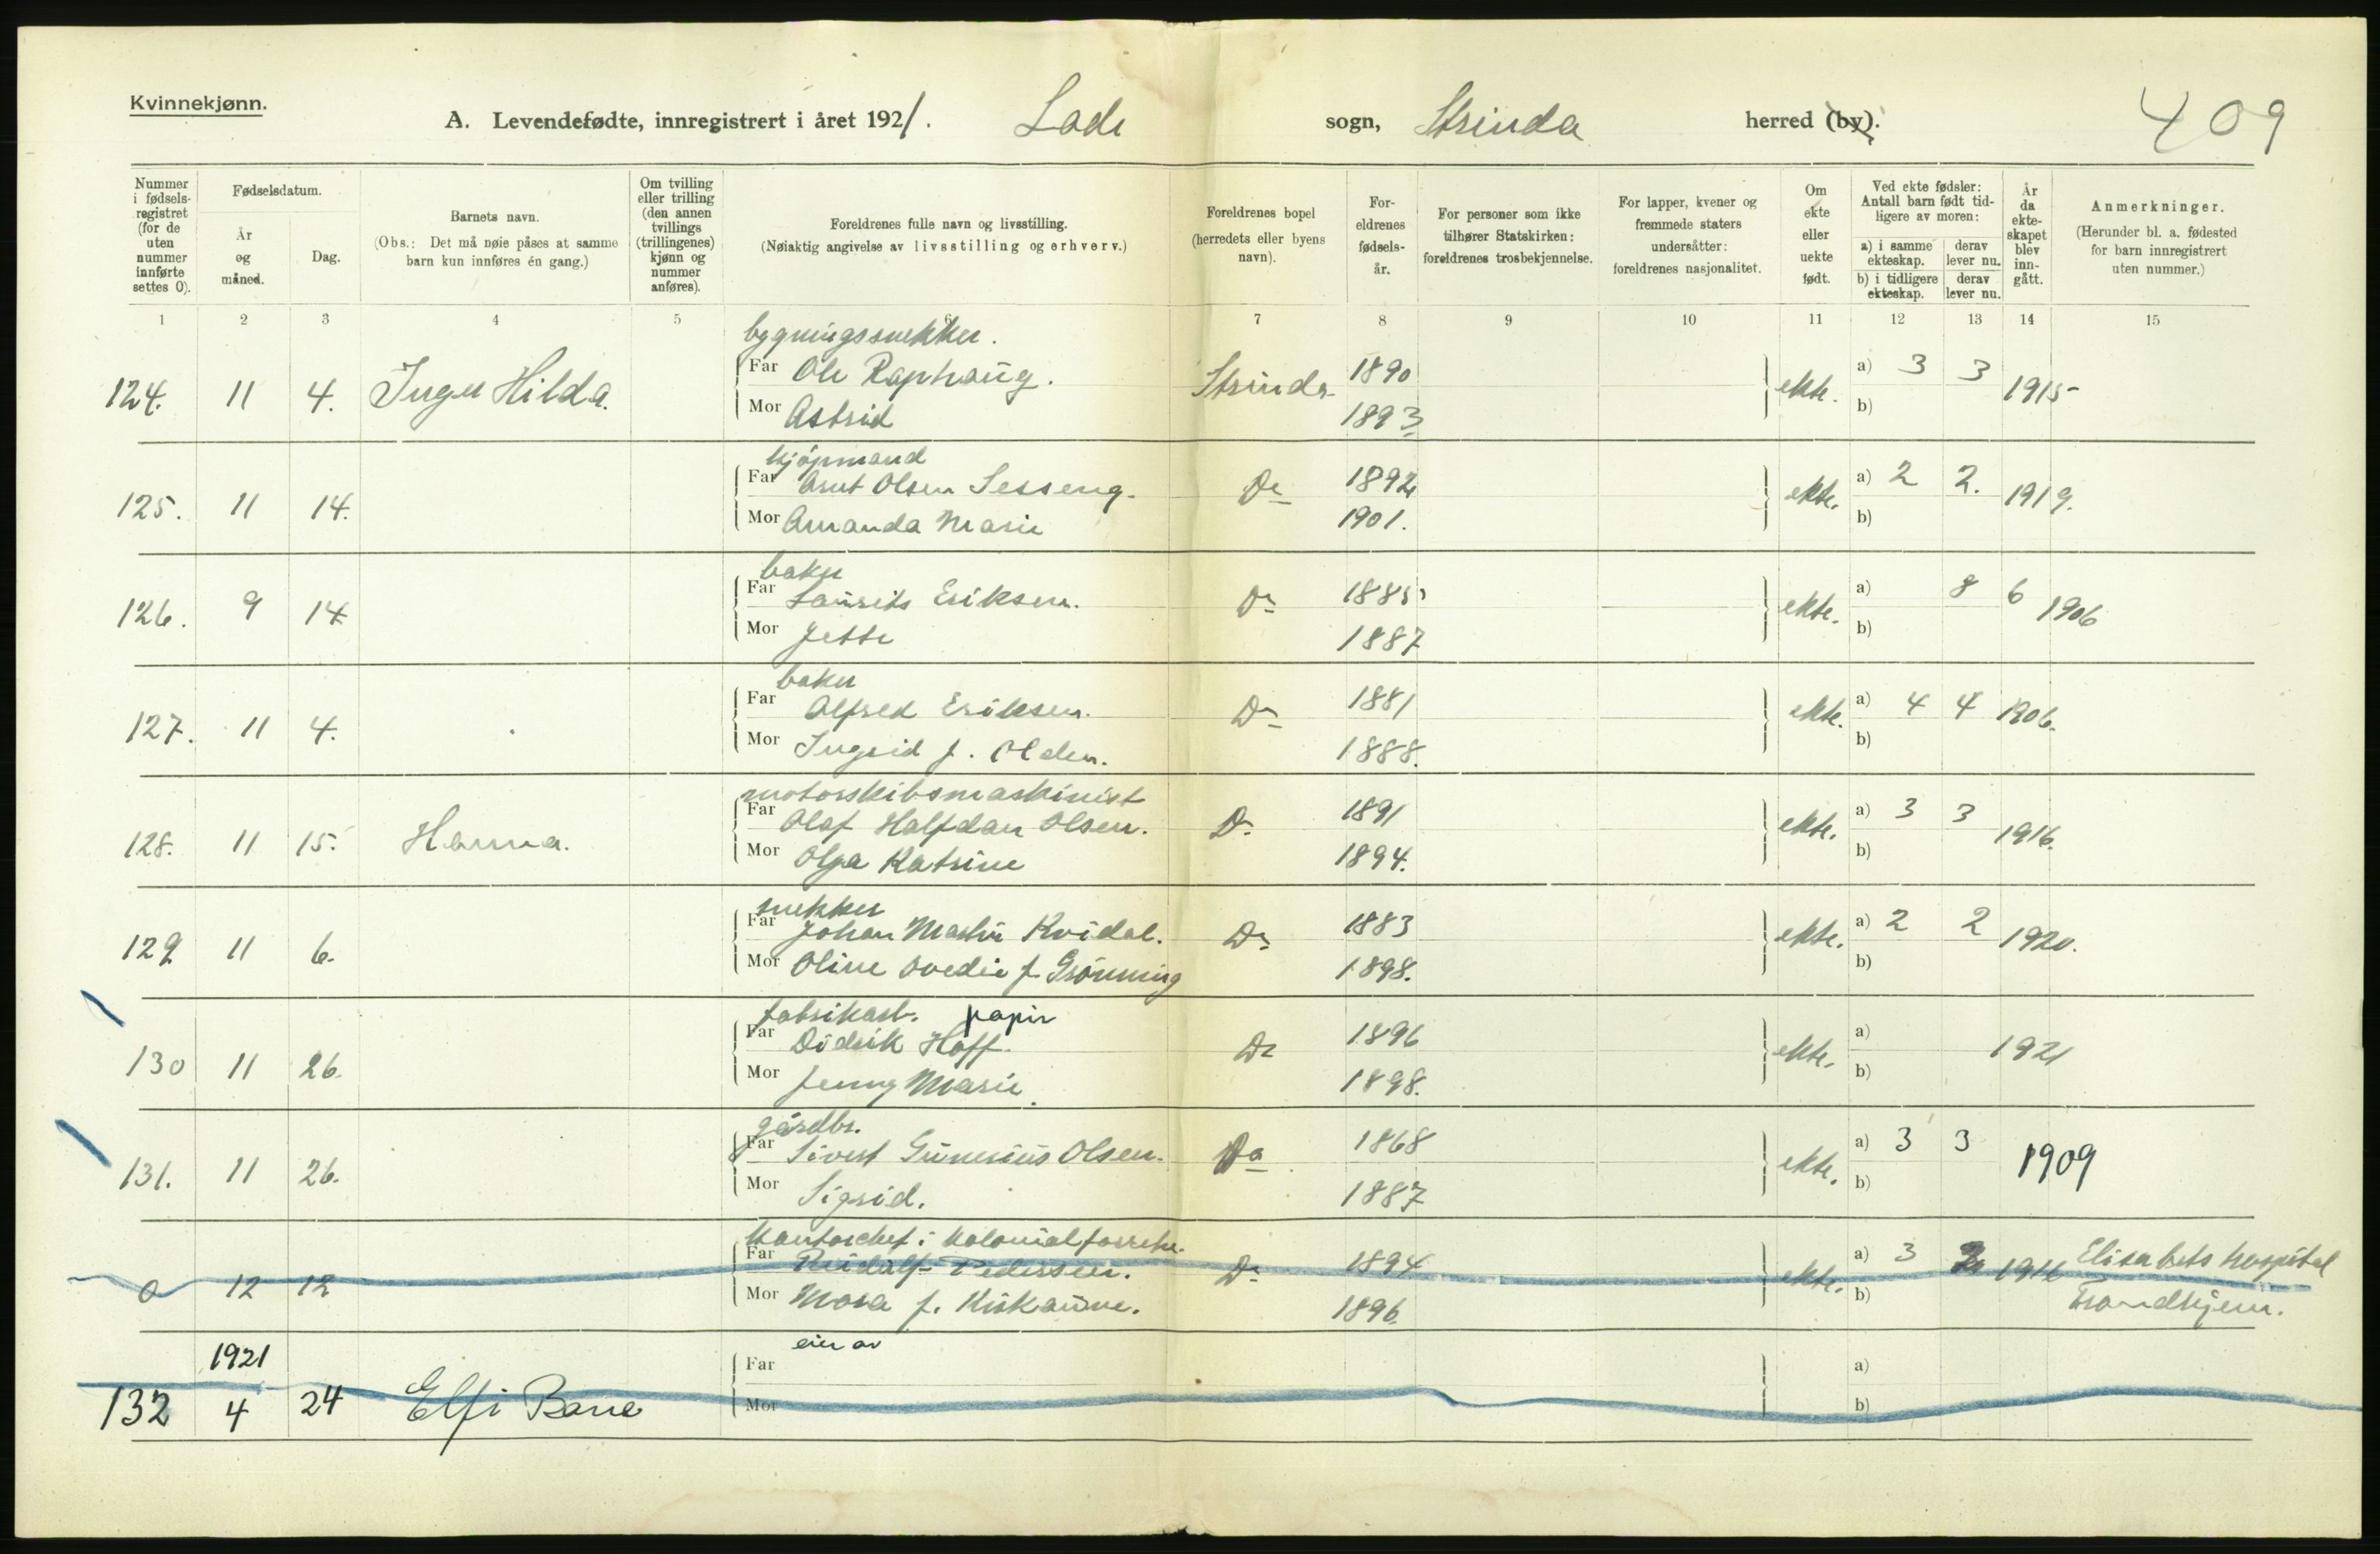 Kvinnekjønn.
A. Levendefødte, innregistrert i året 1921. Lade sogn, Strinda herred (by). 409
Nummer i fødselsregistret (for de uten nummer innførte settes 0).
Fødselsdatum.
År og måned.
Dag.
Barnets navn.
(Obs.: Det må nøie påses at samme barn kun innføres én gang.)
Om tvilling eller trilling (den annen tvillings (trillingenes) kjønn og nummer anføres).
Foreldrenes fulle navn og livsstilling.
(Nøiaktig angivelse av livsstilling og erhverv.)
Foreldrenes bopel (herredets eller byens navn).
Foreldrenes fødselsår.
For personer som ikke tilhører Statskirken: foreldrenes trosbekjennelse.
For lapper, kvener og fremmede staters undersåtter: foreldrenes nasjonalitet.
Om ekte eller uekte født.
Ved ekte fødsler: Antall barn født tidligere av moren:
a) i samme ekteskap. derav lever nu.
b) i tidligere ekteskap. derav lever nu.
År da ekteskapet blev inngått.
Anmerkninger.
(Herunder bl. a. fødested for barn innregistrert uten nummer.)
1 2 3 4 5 6 7 8 9 10 11 12 13 14 15
bygningssnekker.
124. 11 4. Inger Hilda. Far Ole Raphaug. Strinda 1890 ekte. a) 3 3 1915
Mor Astrid 1893 b)
kjøpmand
125. 11 14. Far Arnt Olsen Sesseng. Do 1892 ekte. a) 2 2. 1919.
Mor Amanda Marie 1901. b)
baker
126. 9 14 Far Laurits Eriksen. Do 1885 ekte. a) 8 6 1906
Mor Jette 1887 b)
baker
127. 11 4. Far Alfred Eriksen. Do 1881 ekte. a) 4 4 1906.
Mor Ingrid f. Olden. 1888. b)
motorskibsmaskinist
128. 11 15. Hanna. Far Olaf Halfdan Olsen. Do 1891 ekte. a) 3 3 1916.
Mor Olga Katrine 1894. b)
snekker
129 11 6. Far Johan Martin Kvidal. Do 1883 ekte. a) 2 2 1920.
Mor Oline Ovedie f. Grönning 1898. b)
fabrikarb. papir
130 11 26. Far Didrik Hoff. Do 1896 ekte. a) 1921
Mor Jenny Marie. 1898. b)
gårdbr.
131. 11 26. Far Sivert Gunerius Olsen. Do 1868 ekte. a) 3 3 1909
Mor Sigrid. 1887 b)
Kontorchef i kolonialforretn.
0 12 12 Far Rudolf Pedersen. Do 1894 ekte. a) 3 Elisabets hospital
Mor f. 1896 b) Trondhjem.
1921 eier av
132 4 24 Elfi Far a)
Mor b)